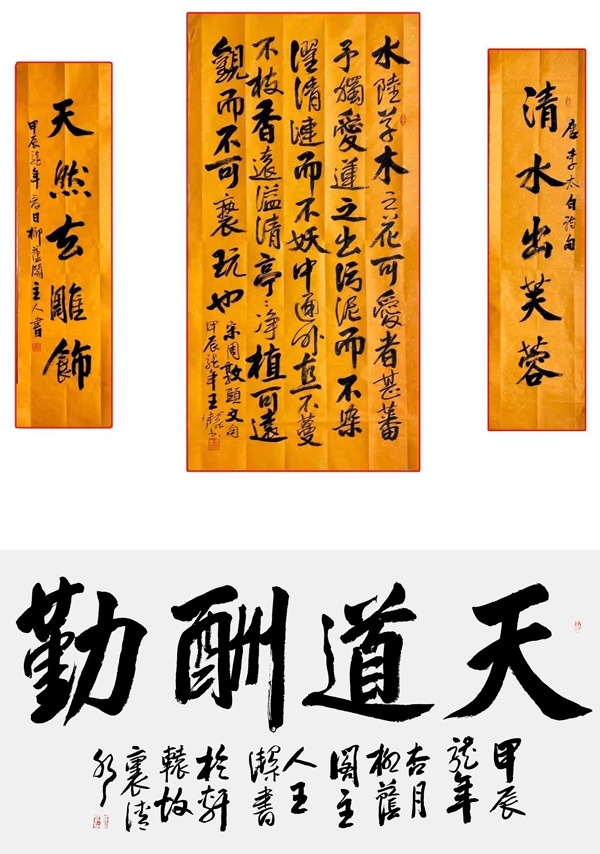 唐李太白詩句
清水出芙蓉
水陸草木之花可愛者甚蕃
予獨愛蓮之出污泥而不染
濯清漣而不妖中通外直不蔓
不枝香遠溢清亭々淨植可遠
觀而不可褻玩也
宋周敦頤文句
甲辰龍年王潔書
天然去雕飾
甲辰龍年春日柳蔭閣主人書
天道酬勤
甲辰
龍年
杏月
柳蔭
閣主
人王
潔書
於軒
轅故
裏清
水